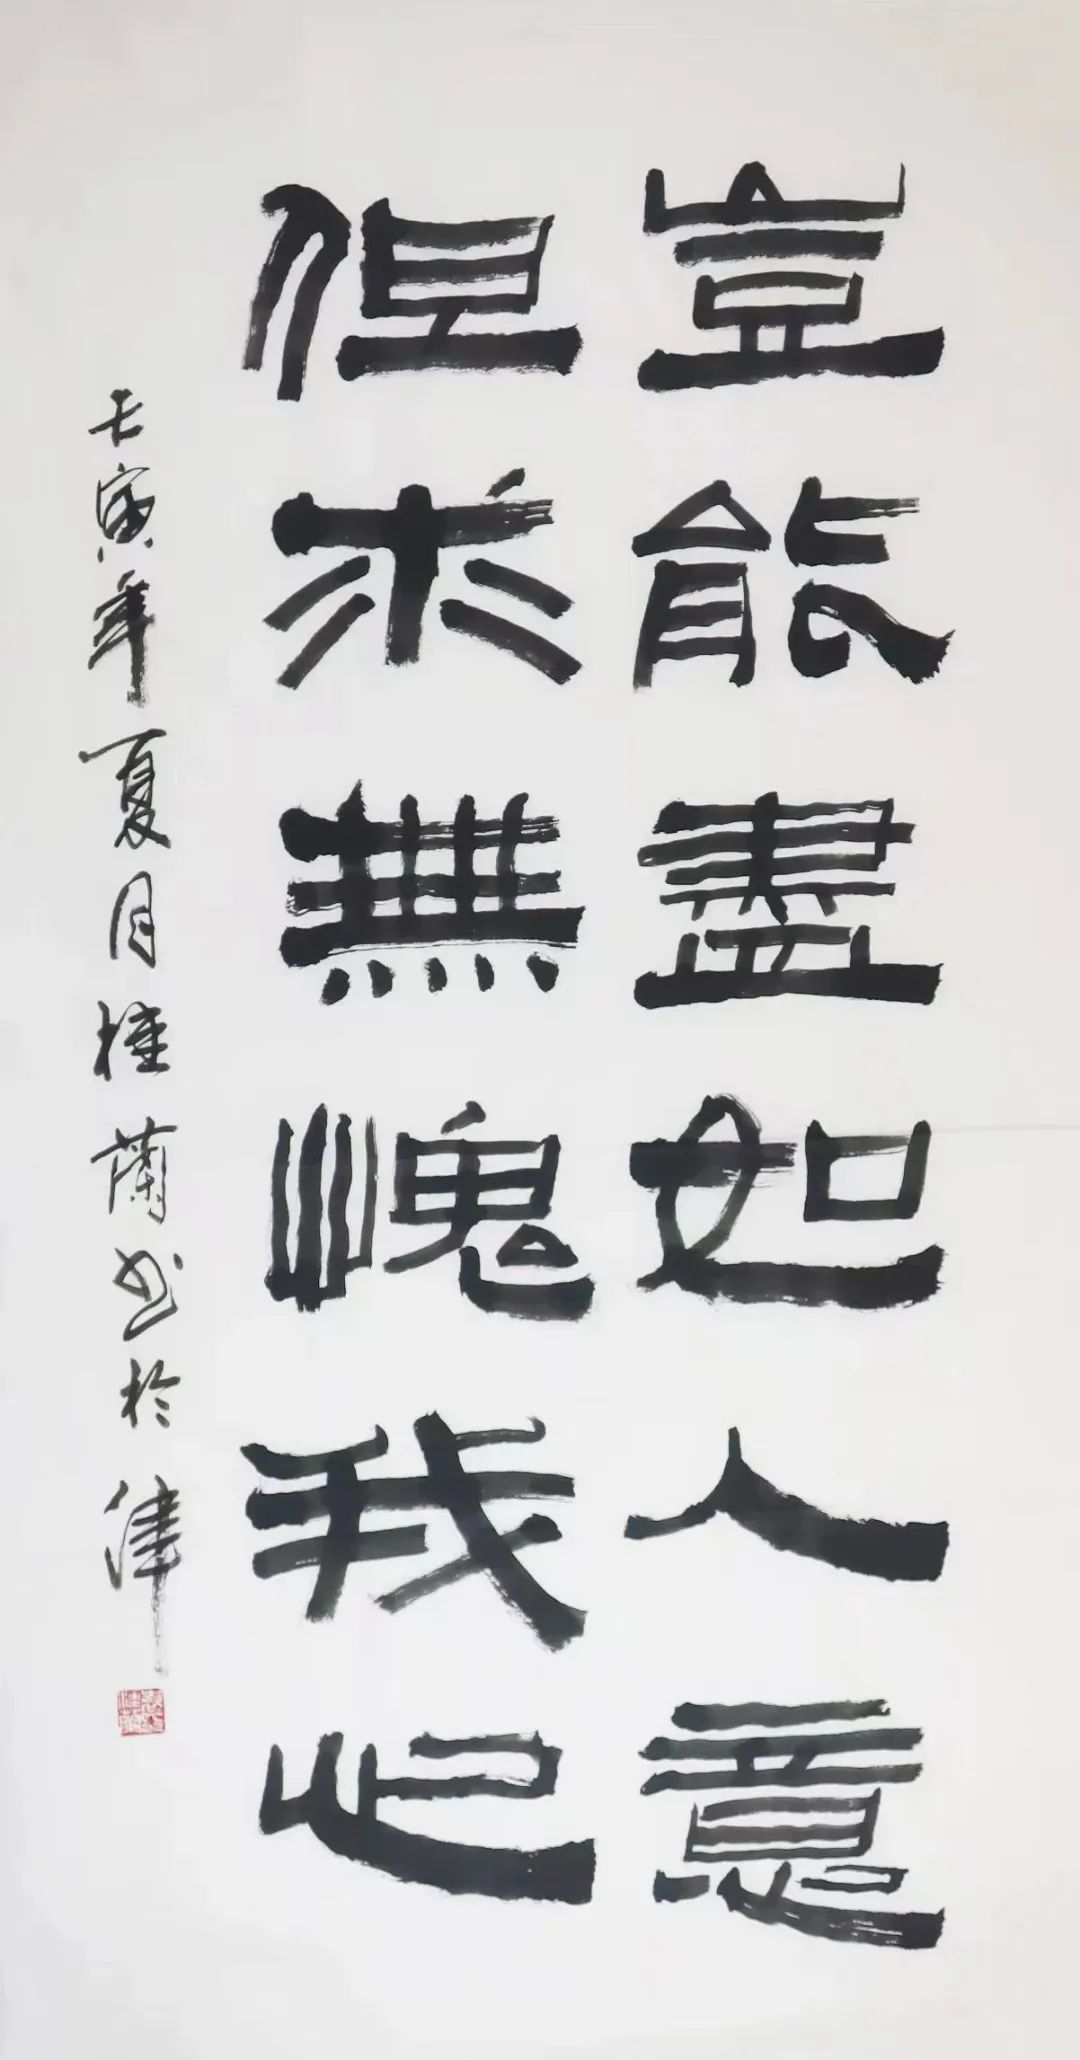 豈能盡如人意
但求無愧我心
壬寅年夏月桂蘭书於津